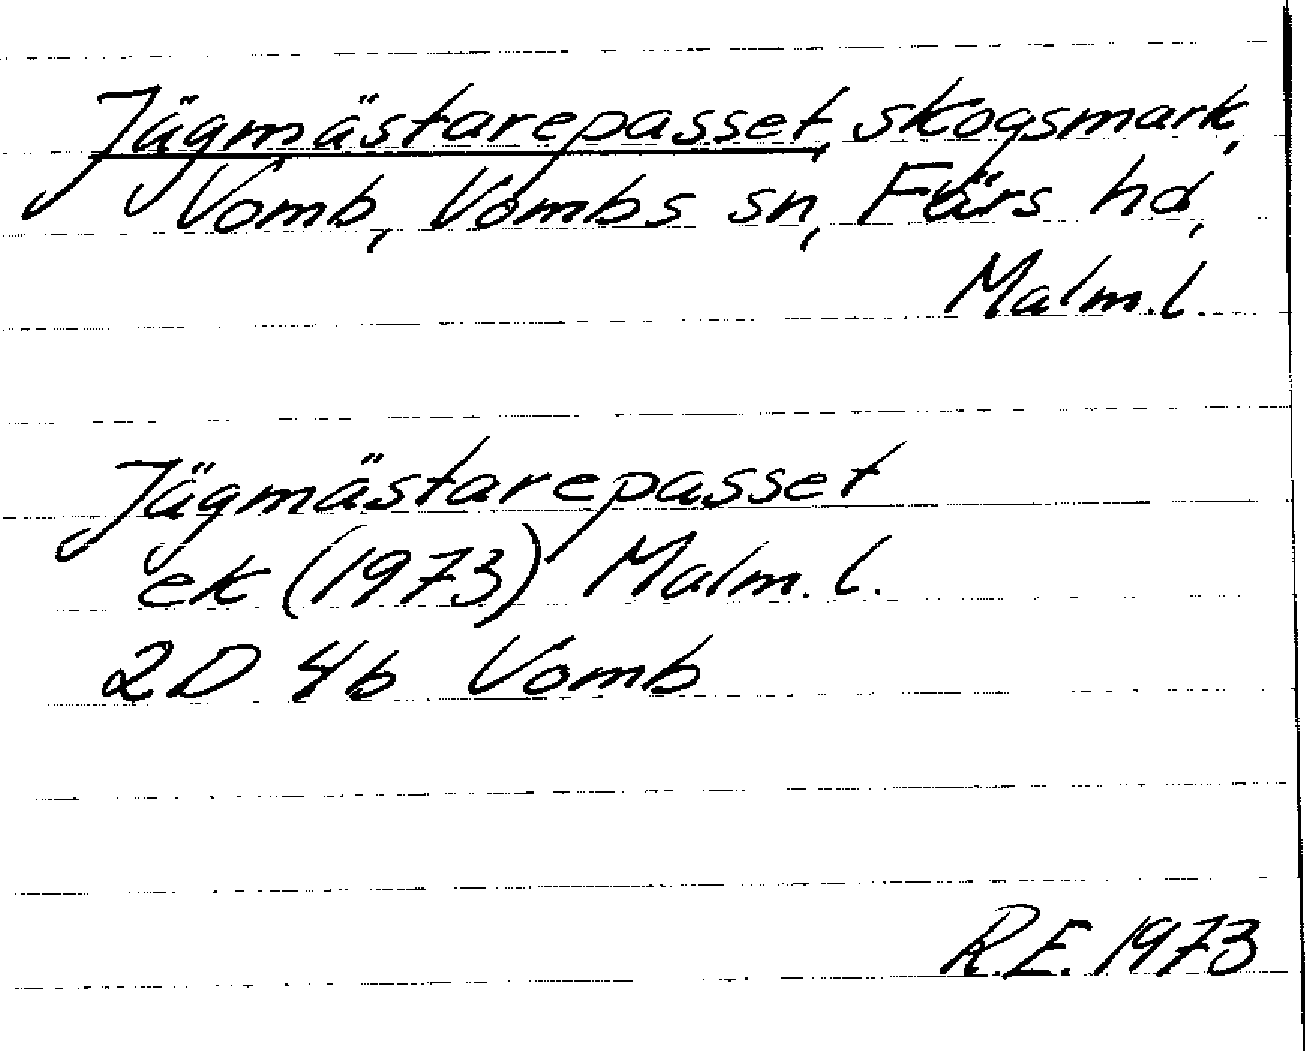 Jägmästarepasset, skogsmark,
Vomb, Vombs sn, Färs hd,
Malm.l.
Jägmästarepasset
ek (1973) Malm. l.
2D 4b Vomb
R.E. 1973